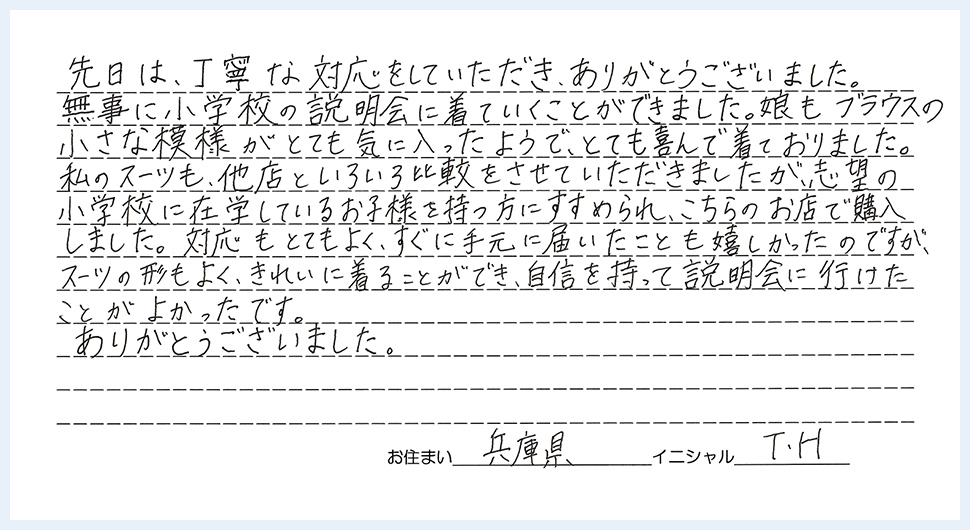 先日は、丁寧な対応をしていただき、ありがとうございました。
無事に小学校の説明会に着ていくことができました。娘もブラウスの
小さな模様がとても気に入ったようで、とても喜んで着ておりました。
私のスーツも、他店といろいろ比較をさせていただきましたが、志望の
小学校に在学しているお子様を持つ方にすすめられ、こちらのお店で購入
しました。対応もとてもよく、すぐに手元に届いたことも嬉しかったのですが、
スーツの形もよく、きれいに着ることができ、自信を持って説明会に行けた
ことがよかったです。
ありがとうございました。
お住まい 兵庫県 イニシャル T・H